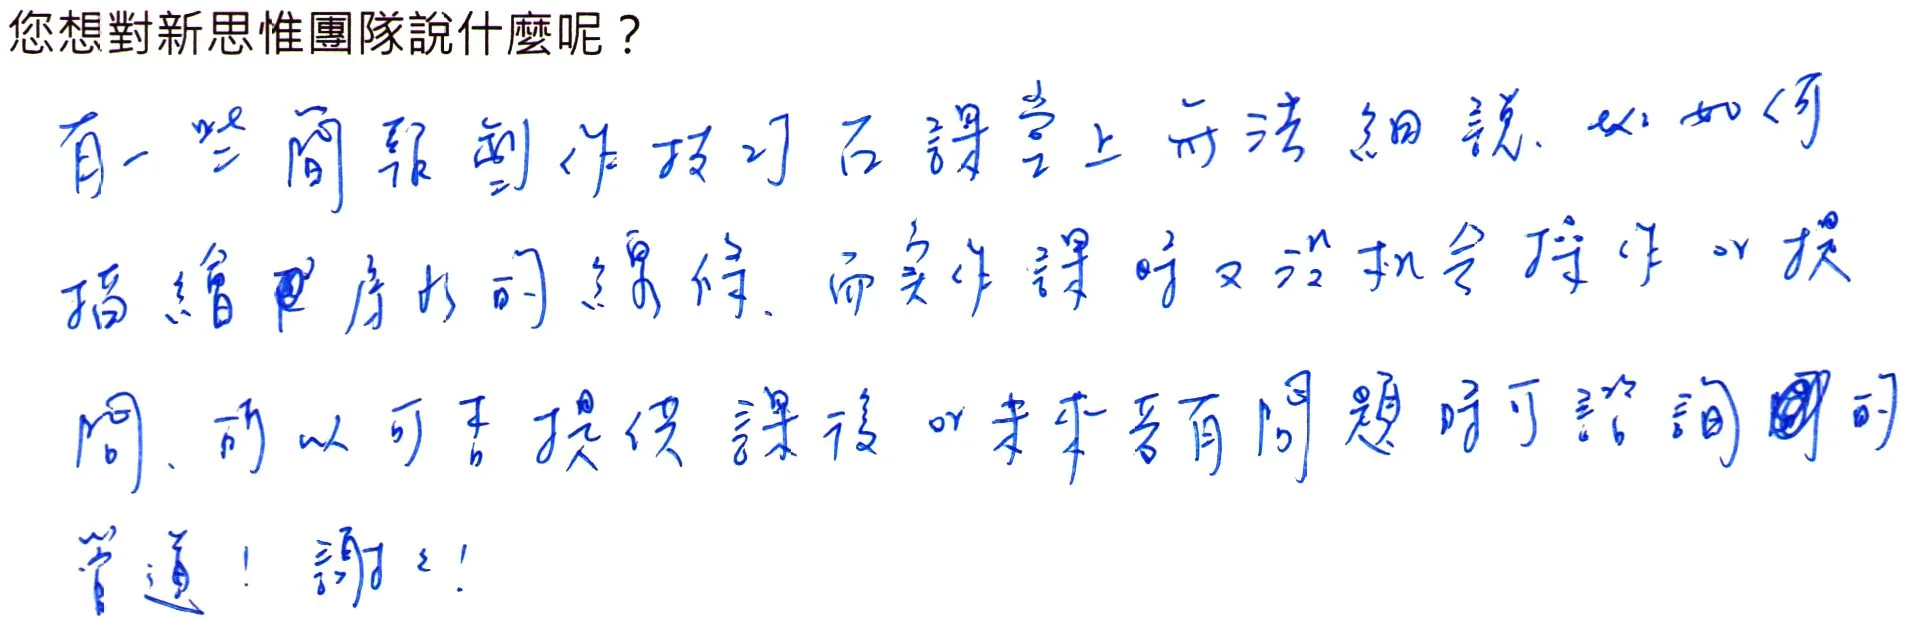 您想對新思惟團隊說什麼呢？
有一些簡報製作技巧在課堂上無法細說、ex: 如何
描繪身形的線條、而實作課時又沒机会操作 or 提
問、所以可否提供課後 or 未來若有問題時可諮詢的
管道！謝謝！